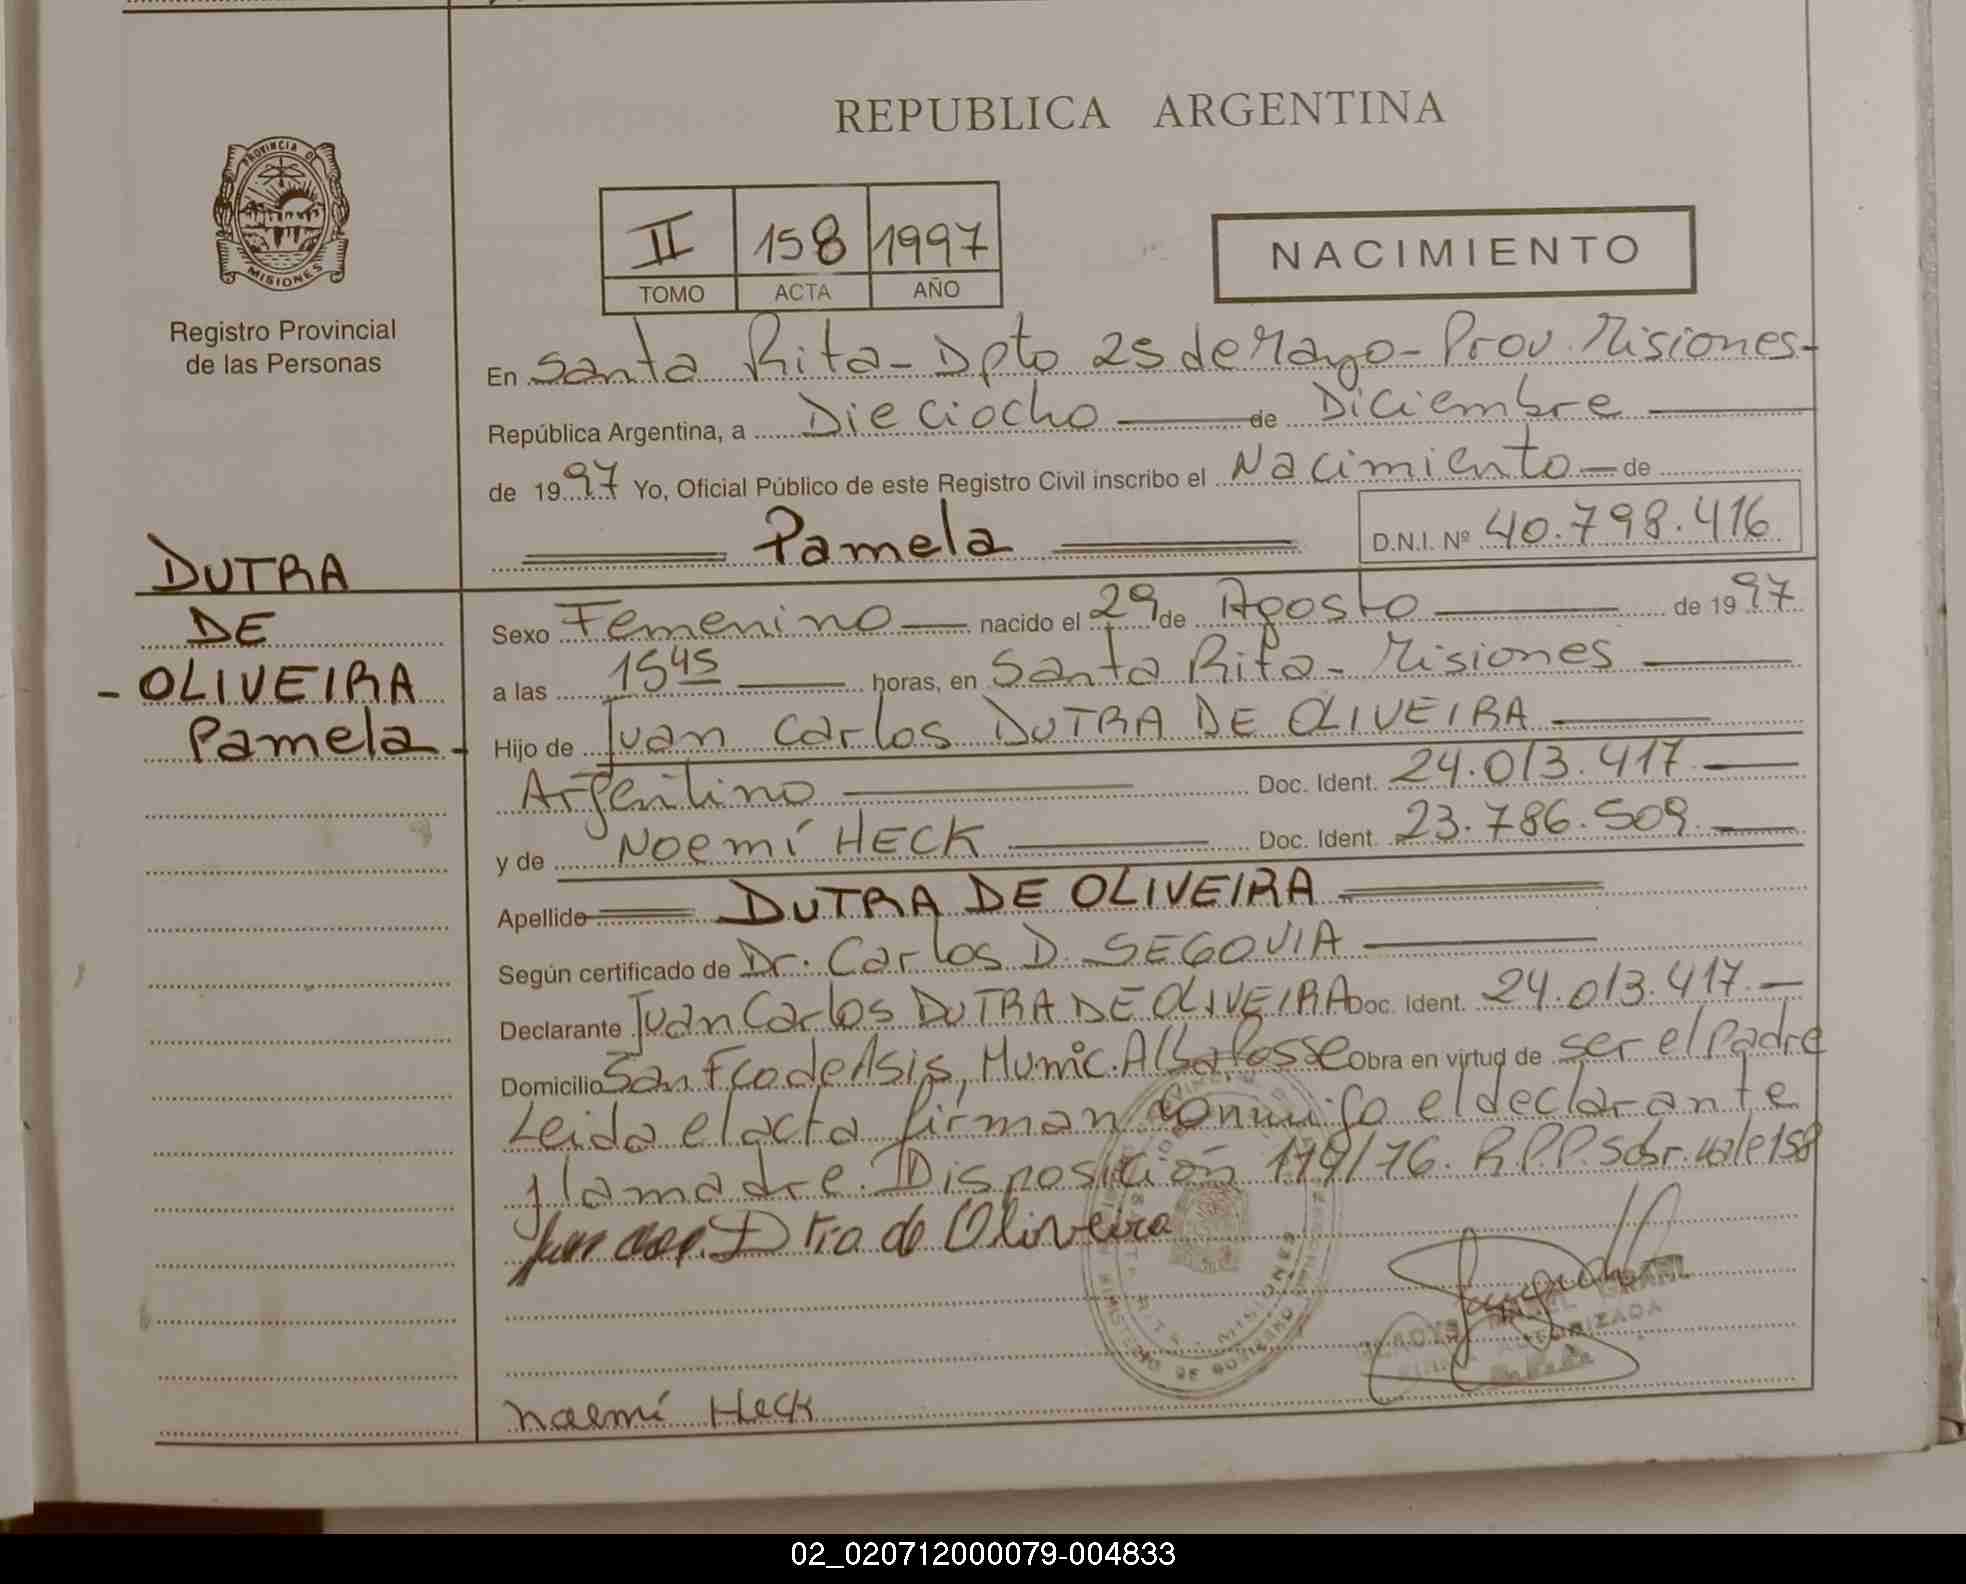 REPUBLICA ARGENTINA
PROVINCIA DE
MISIONES
Registro Provincial
de las Personas
II 158 1997
TOMO ACTA AÑO
NACIMIENTO
En Santa Rita - Dpto 25 de Mayo - Prov. Misiones -
República Argentina, a Dieciocho de Diciembre
de 1997 Yo, Oficial Público de este Registro Civil inscribo el Nacimiento de
Pamela
D.N.I. Nº 40.798.416
DUTRA
DE
- OLIVEIRA
Pamela -
Sexo Femenino nacido el 29 de Agosto de 1997
a las 15 45 horas, en Santa Rita - Misiones
Hijo de Juan Carlos DUTRA DE OLIVEIRA
Argentino Doc. Ident. 24.013.417
y de Noemí HECK Doc. Ident. 23.786.509
Apellido DUTRA DE OLIVEIRA
Según certificado de Dr. Carlos D. SEGOVIA
Declarante Juan Carlos DUTRA DE OLIVEIRA Doc. Ident. 24.013.417
Domicilio San Fco de Asis, Munic. Alba Posse Obra en virtud de ser el padre
Leida el acta firman conmigo el declarante
y la madre. Disposición 179/76. R.P.P. Sobr. vale 158
Dtra de Oliveira
AUTORIZADA
Noemí Heck
02_020712000079-004833